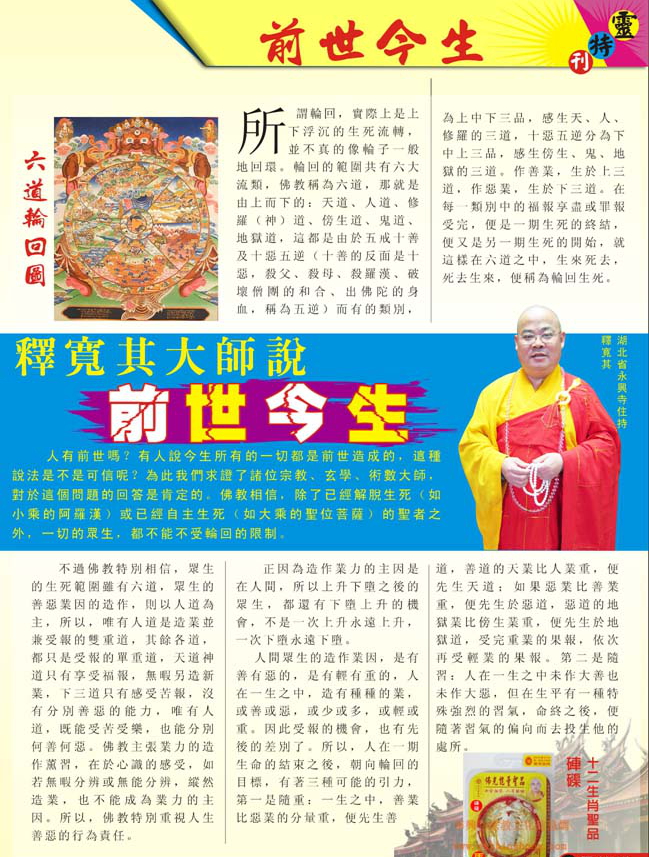 前世今生
靈
特
刊
六道輪回圖
所謂輪回，實際上是上
下浮沉的生死流轉，
並不真的像輪子一般
地回環。輪回的範圍共有六大
流類，佛教稱為六道，那就是
由上而下的：天道、人道、修
羅（神）道、傍生道、鬼道、
地獄道，這都是由於五戒十善
及十惡五逆（十善的反面是十
惡，殺父、殺母、殺羅漢、破
壞僧團的和合、出佛陀的身
血，稱為五逆）而有的類別，
為上中下三品，感生天、人、
修羅的三道，十惡五逆分為下
中上三品，感生傍生、鬼、地
獄的三道。作善業，生於上三
道，作惡業，生於下三道。在
每一類別中的福報享盡或罪報
受完，便是一期生死的終結，
便又是另一期生死的開始，就
這樣在六道之中，生來死去，
死去生來，便稱為輪回生死。
釋寬其大師說
前世今生
湖北省永興寺住持
釋寬其
人有前世嗎？有人說今生所有的一切都是前世造成的，這種
說法是不是可信呢？為此我們求證了諸位宗教、玄學、術數大師，
對於這個問題的回答是肯定的。佛教相信，除了已經解脫生死（如
小乘的阿羅漢）或已經自主生死（如大乘的聖位菩薩）的聖者之
外，一切的眾生，都不能不受輪回的限制。
不過佛教特別相信，眾生
的生死範圍雖有六道，眾生的
善惡業因的造作，則以人道為
主，所以，唯有人道是造業並
兼受報的雙重道，其餘各道，
都只是受報的單重道，天道神
道只有享受福報，無暇另造新
業，下三道只有感受苦報，沒
有分別善惡的能力，唯有人
道，既能受苦受樂，也能分別
何善何惡。佛教主張業力的造
作薰習，在於心識的感受，如
若無暇分辨或無能分辨，縱然
造業，也不能成為業力的主
因。所以，佛教特別重視人生
善惡的行為責任。
正因為造作業力的主因是
在人間，所以上升下墮之後的
眾生，都還有下墮上升的機
會，不是一次上升永遠上升，
一次下墮永遠下墮。
人間眾生的造作業因，是有
善有惡的，是有輕有重的，人
在一生之中，造有種種的業，
或善或惡，或少或多，或輕或
重。因此受報的機會，也有先
後的差別了。所以，人在一期
生命的結束之後，朝向輪回的
目標，有著三種可能的引力，
第一是隨重：一生之中，善業
比惡業的分量重，便先生善
道，善道的天業比人業重，便
先生天道；如果惡業比善業
重，便先生於惡道，惡道的地
獄業比傍生業重，便先生於地
獄道，受完重業的果報，依次
再受輕業的果報。第二是隨
習：人在一生之中未作大善也
未作大惡，但在生平有一種特
殊強烈的習氣，命終之後，便
隨著習氣的偏向而去投生他的
處所。
十二生肖聖品
硨磲